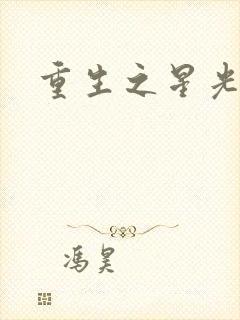 重生之星光
冯昊